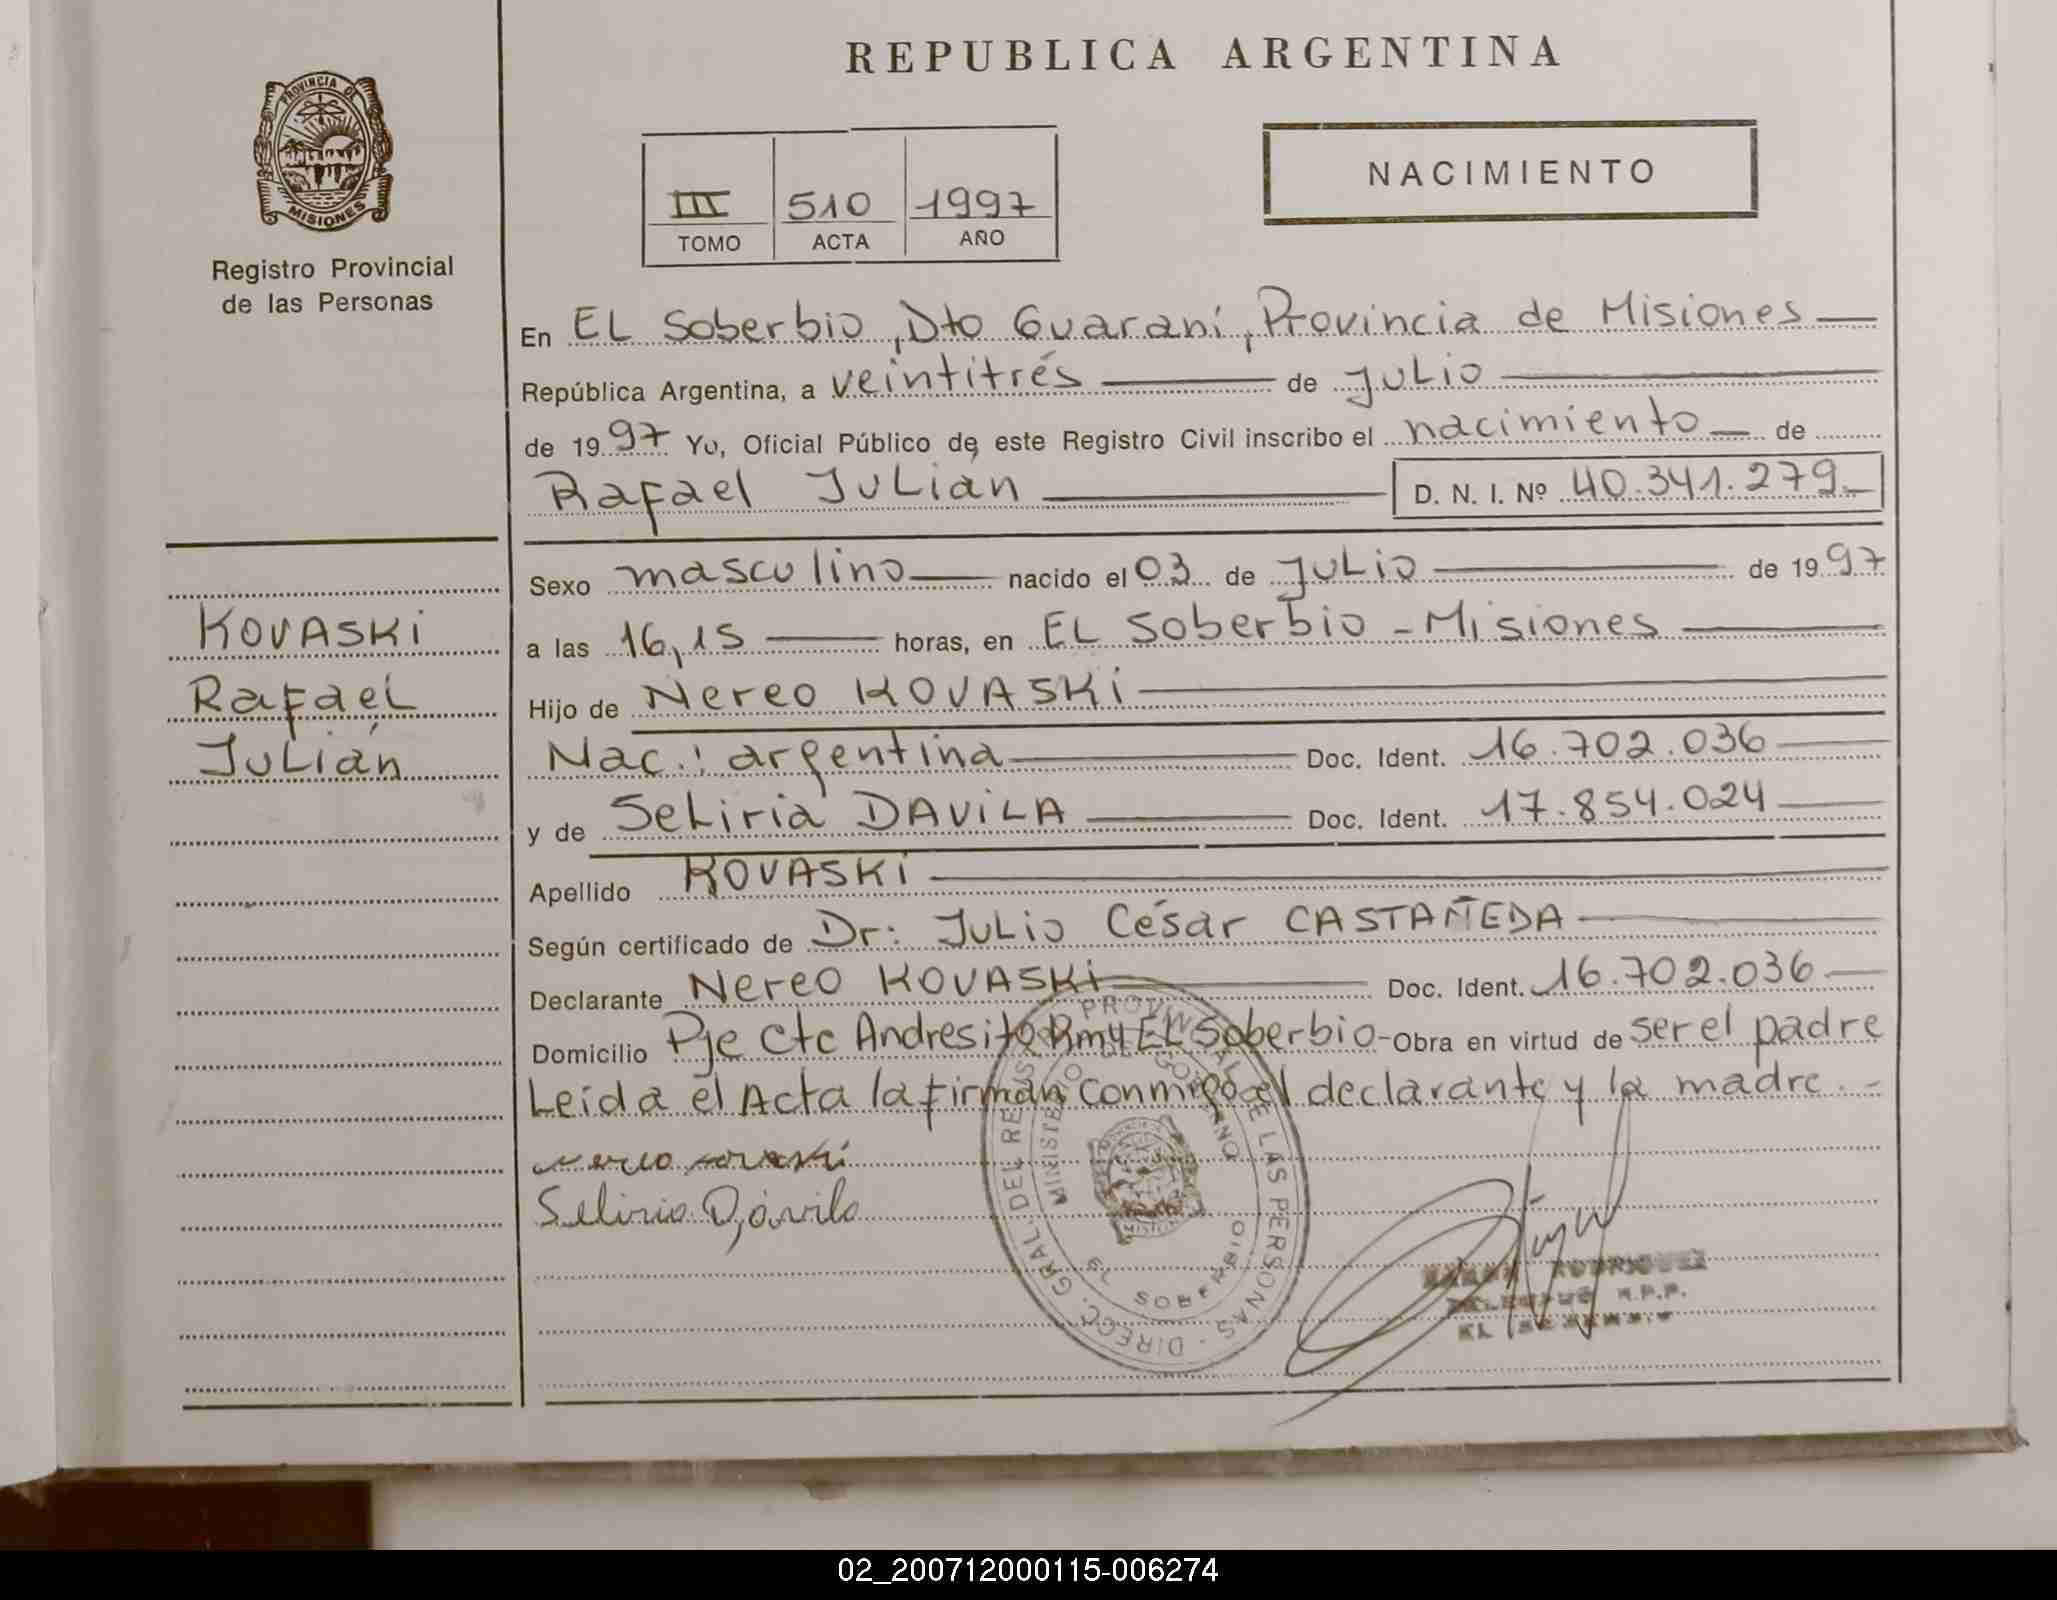 REPUBLICA ARGENTINA
PROVINCIA DE
MISIONES
Registro Provincial
de las Personas
III 510 1997
TOMO ACTA AÑO
NACIMIENTO
En EL Soberbio, Dto Guaraní, Provincia de Misiones
República Argentina, a veintitrés de JULIO
de 1997 Yo, Oficial Público de este Registro Civil inscribo el nacimiento de
Rafael JULián D. N. I. Nº 40.341.279
Sexo masculino nacido el 03 de JULIO de 1997
a las 16,15 horas, en EL Soberbio - Misiones
Hijo de Nereo KOVASKi
Nac.: argentina Doc. Ident. 16.702.036
y de SeLiria DAViLA Doc. Ident. 17.854.024
Apellido KOVASKi
Según certificado de Dr: JULIO César CASTAÑEDA
Declarante Nereo KOVASKi Doc. Ident. 16.702.036
Domicilio Pje Cte Andresito Rmy EL Soberbio - Obra en virtud de ser el padre
Leída el Acta la firman conmigo el declarante y la madre.-
Nereo Kovaski
Seliria Dávila
KOVASKi
Rafael
JULián
DIRECC. GRAL. DEL REGIST. PROVINCIAL DE LAS PERSONAS
MINISTERIO DE GOBIERNO
SOBERBIO
RODRIGUEZ
R.P.P.
EL SOBERBIO
02_200712000115-006274